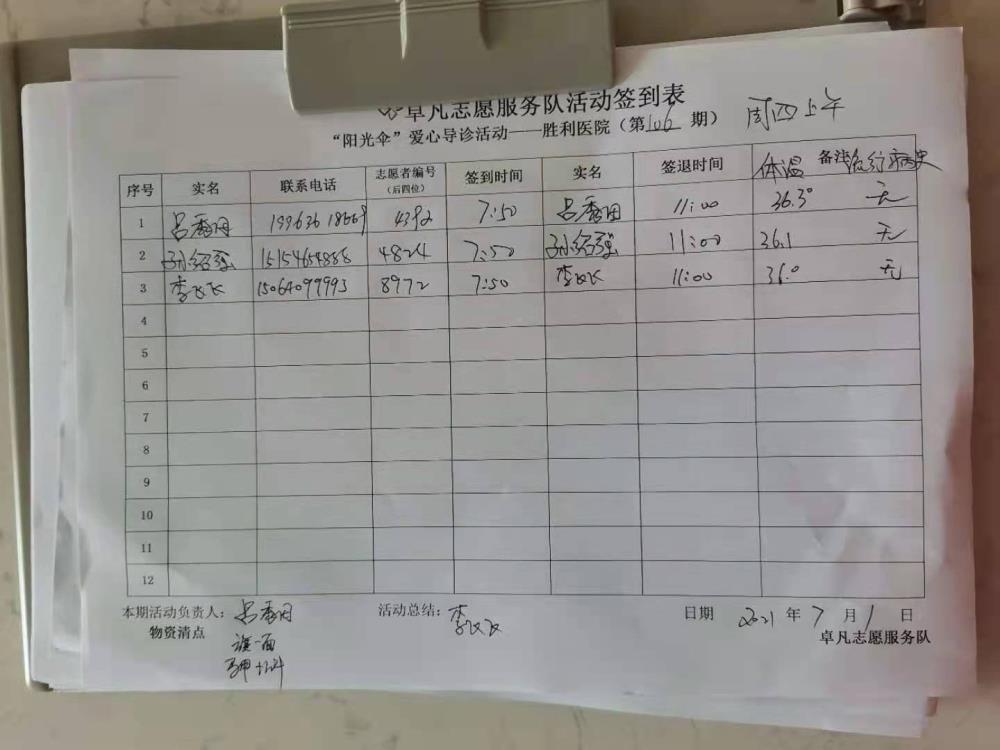 卓凡志愿服务队活动签到表
“阳光伞”爱心导诊活动——胜利医院（第106期） 周四上午
序号 实名 联系电话 志愿者编号（后四位） 签到时间 实名 签退时间 备注 体温 流行病史
1 吕秀田 19963618669 4392 7:50 吕秀田 11:00 36.3° 无
2 孙绍强 15154654888 4824 7:50 孙绍强 11:00 36.1 无
3 李飞飞 15064099993 8972 7:50 李飞飞 11:00 36.0 无
4
5
6
7
8
9
10
11
12
本期活动负责人：吕秀田 活动总结：李飞飞 日期 2021年7月1日
物资清点 卓凡志愿服务队
旗一面
马甲